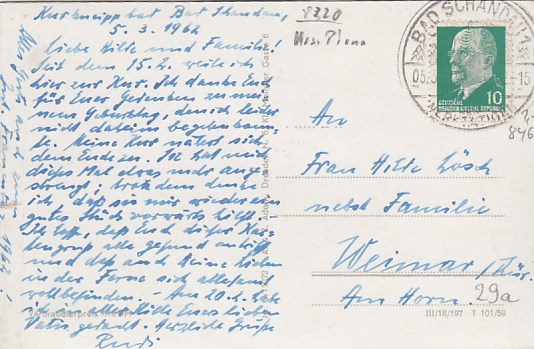 Kurkneippbad Bad Schandau,
5. 3. 1962
Liebe Hilde und Familie
Seit dem 15.2. weile ich
hier zur Kur. Ich danke Euch
für Euer Gedenken zu mei-
nem Geburtstag, den ich leider
nicht daheim begehen konn-
te. Meine Kur nähert sich
dem Ende zu. Sie hat mich
dieses Mal etwas mehr ange-
strengt; trotzdem denke
ich, daß sie mir wieder ein
gutes Stück vorwärts hilft.
Ich hoffe, daß Euch dieser Kar-
tengruß alle gesund antrifft
und daß auch Deine lieben
in der Ferne sich allesamt
wohlbefinden. - Am 20.2. habe
ich an Euren lieben
Vater gedacht. Herzliche Grüße
Rudi
Alles Gute auch zum
1962 !
8320
BAD SCHANDAU
05.
-15
10
DEUTSCHE
DEMOKRATISCHE REPUBLIK
846
An
Frau Hilde Lösch
nebst Familie
Weimar /Thür.
Am Horn 29a
III/18/197 T 101/59